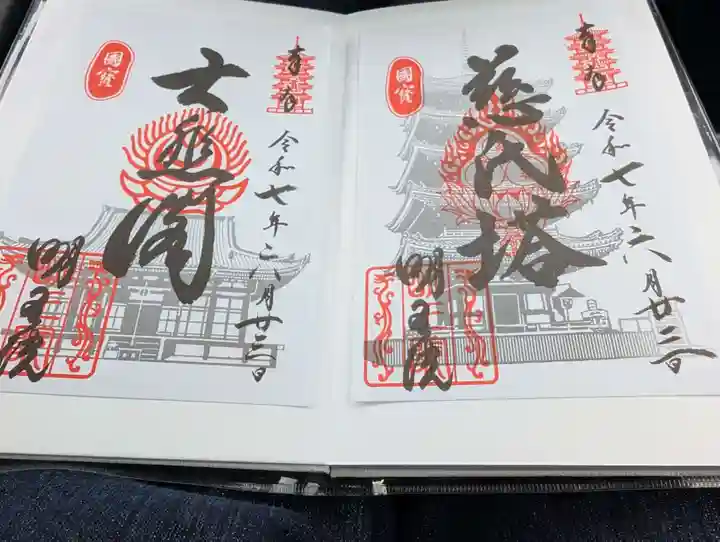 奉拝
令和七年六月廿三日
慈氏塔
國寳
明王院
奉拝
令和七年六月廿三日
大悲閣
國寳
明王院